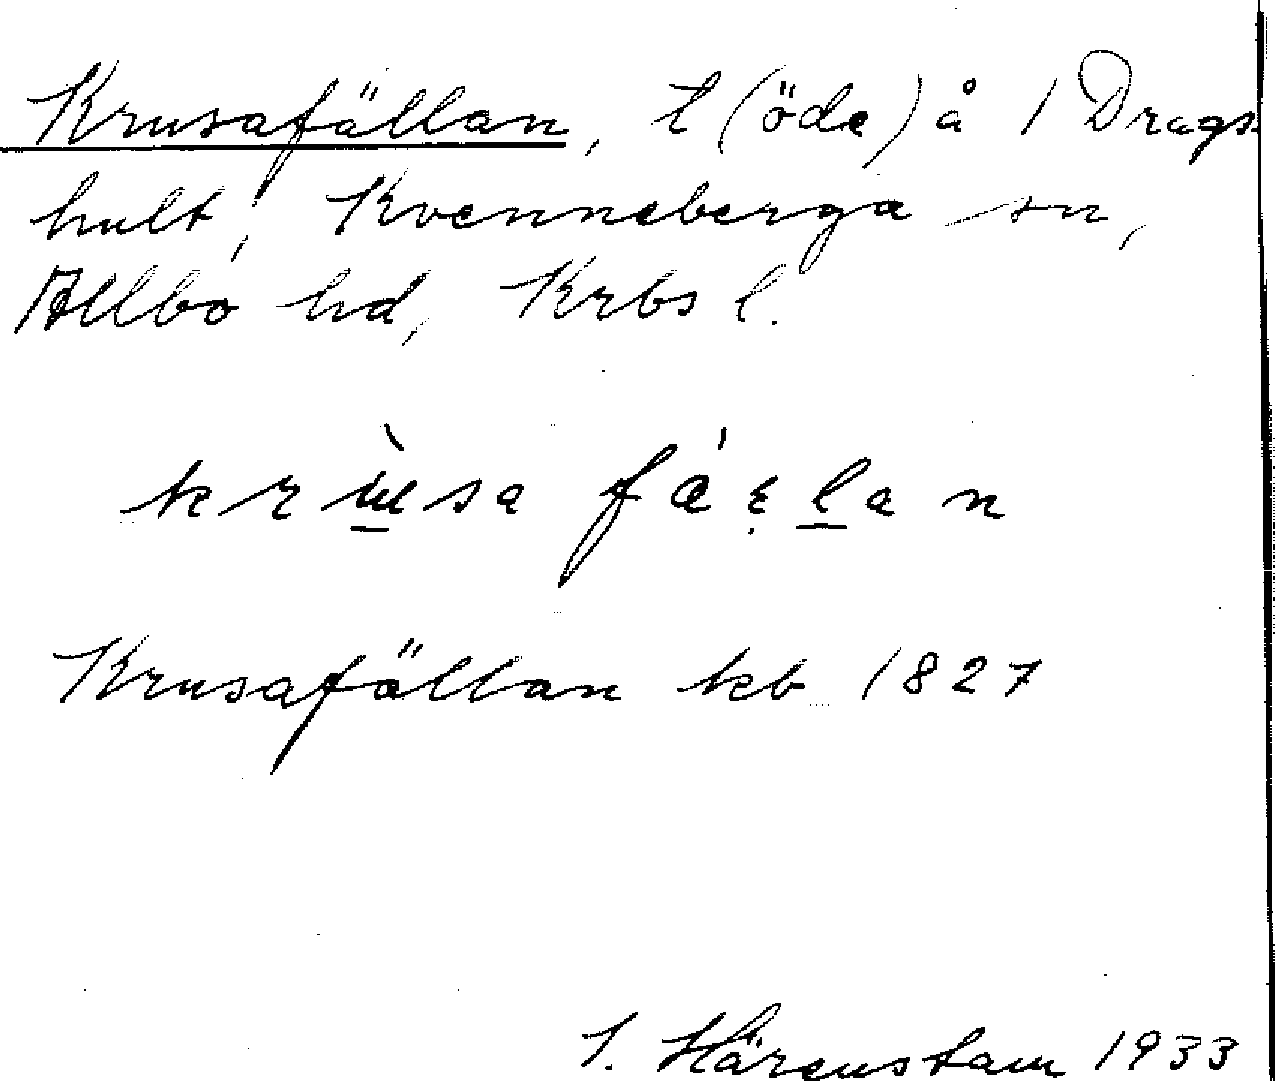 Krusafällan, t (öde) å 1 Drags
hult, Kvenneberga sn,
Allbo hd, Krbs l.
Krusafällan kb 1827
I. Härenstam 1933